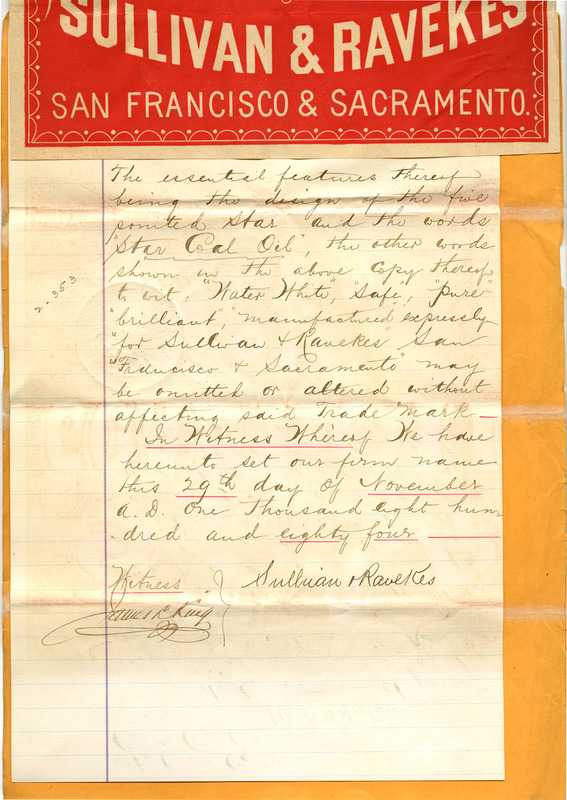 SULLIVAN & RAVEKES
SAN FRANCISCO & SACRAMENTO.
The essential features thereof
being the design of the five
pointed Star and the words
"Star Coal Oil", the other words
shown in the above Copy thereof
to wit, "Water White", "Safe", "pure"
"brilliant", "manufactured expressly
"for Sullivan & Ravekes" San
"Francisco & Sacramento" may
be omitted or altered without
affecting said Trade Mark—
In Witness Whereof We have
hereunto set our firm name
this 29th day of November
A.D. One Thousand eight hun-
-dred and eighty four —
Witness
Sullivan & Ravekes
James L King
2-353